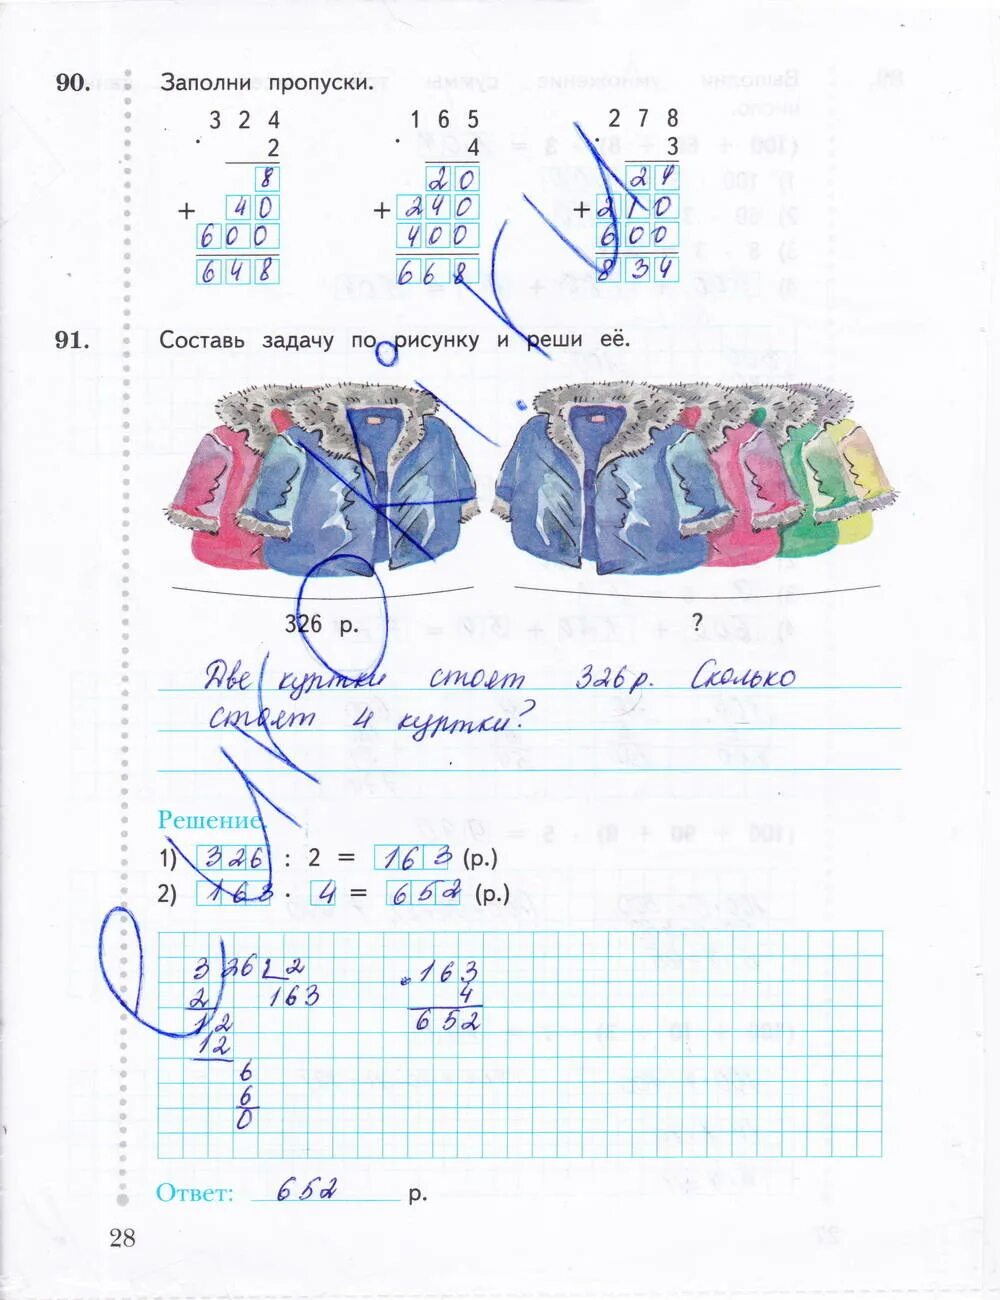 90. Заполни пропуски.
3 2 4
· 2
8
+ 40
600
648
1 6 5
· 4
20
+ 240
400
668
2 7 8
· 3
24
+ 210
600
834
91. Составь задачу по рисунку и реши её.
326 р. ?
Две куртки стоят 326 р. Сколько
стоят 4 куртки?
Решение.
1) 326 : 2 = 163 (р.)
2) 163 · 4 = 652 (р.)
326 2
2 163
12
12
6
6
0
· 163
4
652
Ответ: 652 р.
28